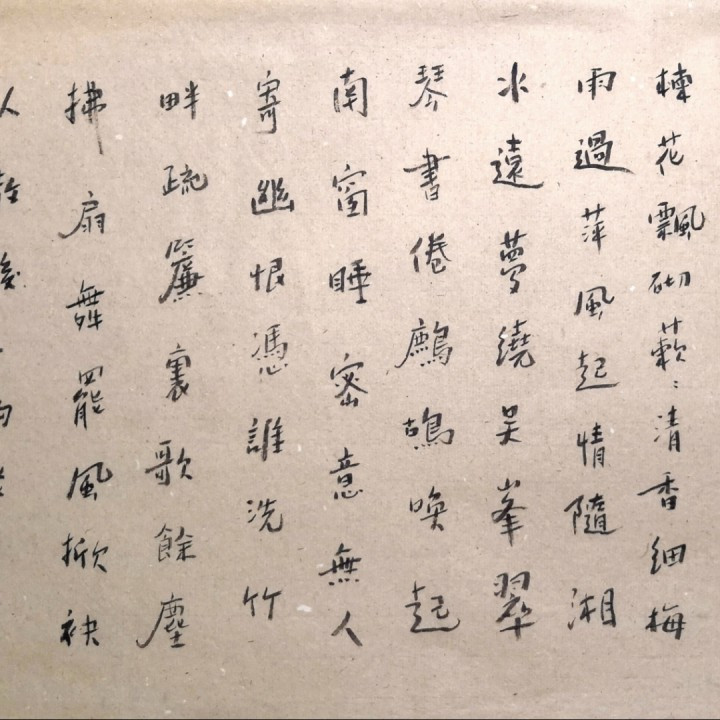 楝花飄砌蔌〻清香細梅
雨過萍風起情隨湘
水遠夢繞吳峯翠
琴書倦鷓鴣喚起
南窗睡密意無人
寄幽恨憑誰洗竹
畔疏簾裏歌餘塵
拂扇舞罷風掀袂
人散後